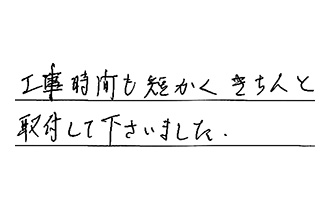 工事時間も短かくきちんと
取付して下さいました.